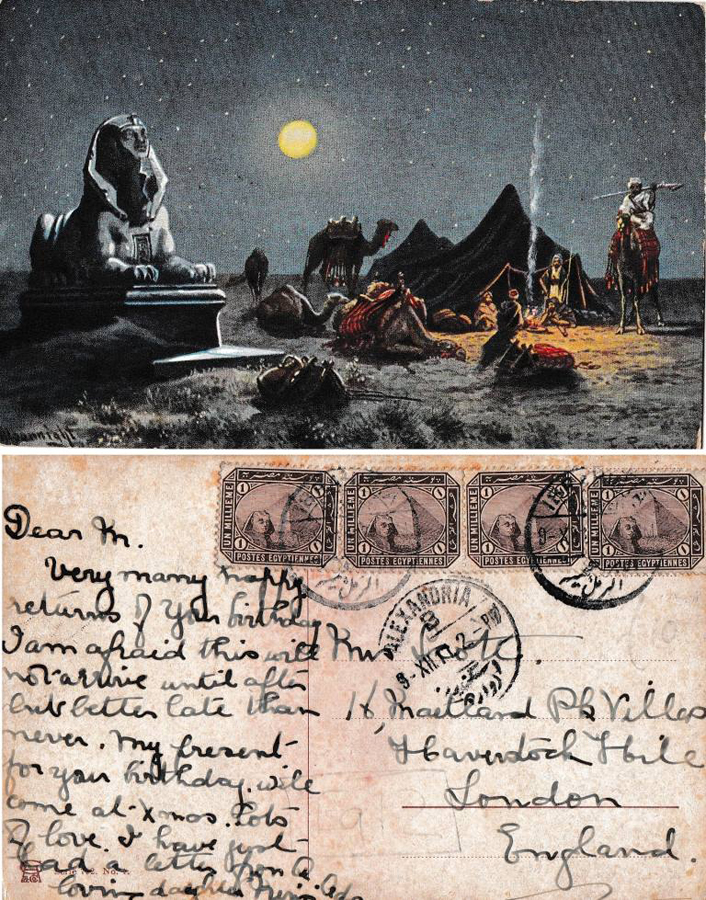 1 1
UN MILLIEME
POSTES EGYPTIENNES
1 1
UN MILLIEME
POSTES EGYPTIENNES
1 1
UN MILLIEME
POSTES EGYPTIENNES
1 1
UN MILLIEME
POSTES EGYPTIENNES
ALEXANDRIA
9-XII
2- PM
Dear M.
Very many happy
returns of your birthday
I am afraid this will
not arrive until after
but better late than
never. My present
for your birthday will
come at Xmas. Lots
of love. I have just
had a letter from
loving daughter
Mrs
16, Maitland Pk Villas
Haverstock Hill
London
England.
No.